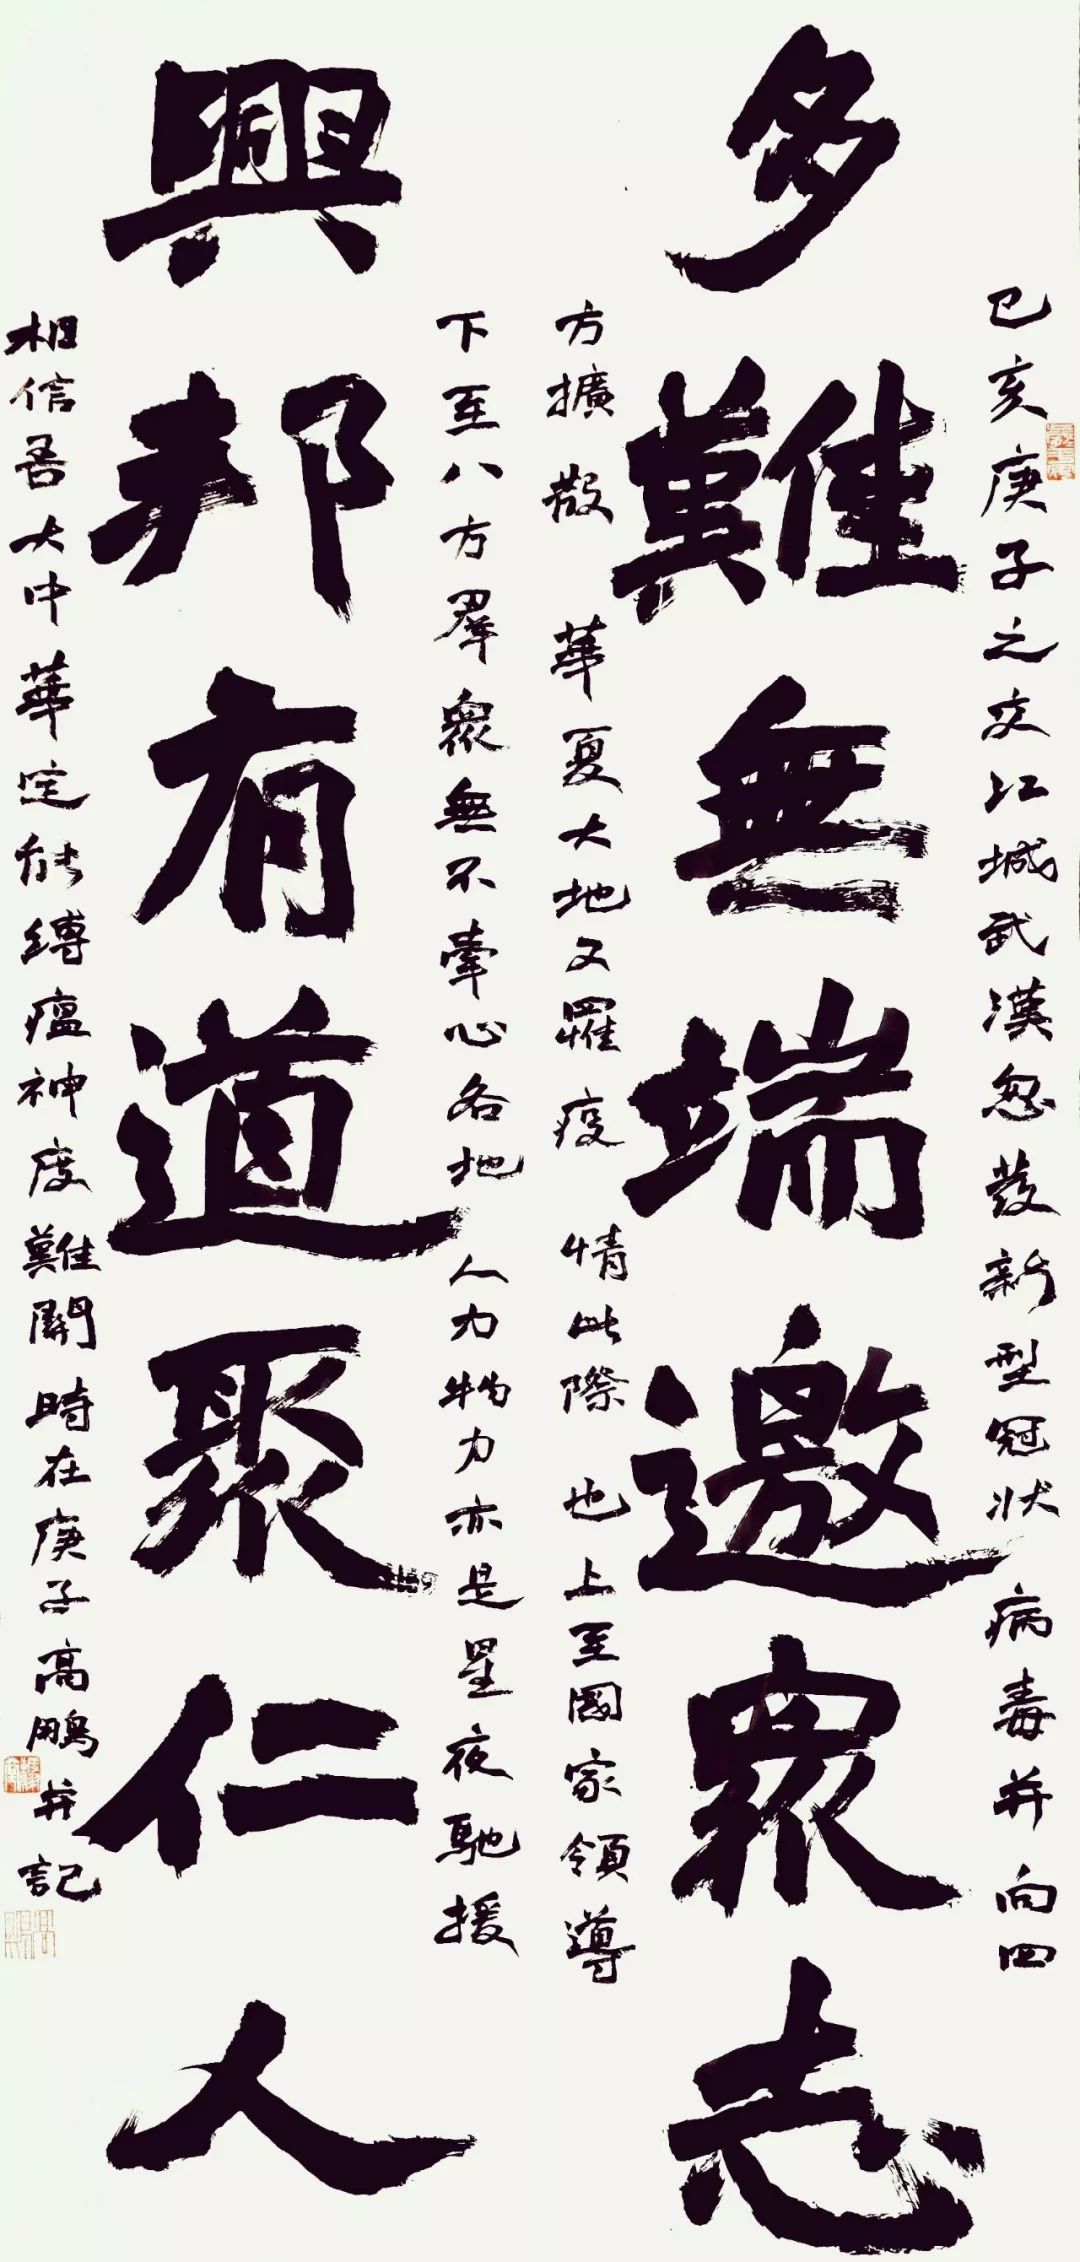 己亥庚子之交江城武漢忽發新型冠狀病毒并向四
多難無端邀眾志
方擴散華夏大地又罹疫情此際也上至國家領導
下至八方羣眾無不牽心各地人力物力亦是星夜馳援
興邦有道聚仁人
相信吾大中華定能縛瘟神度難關時在庚子高鵬并記